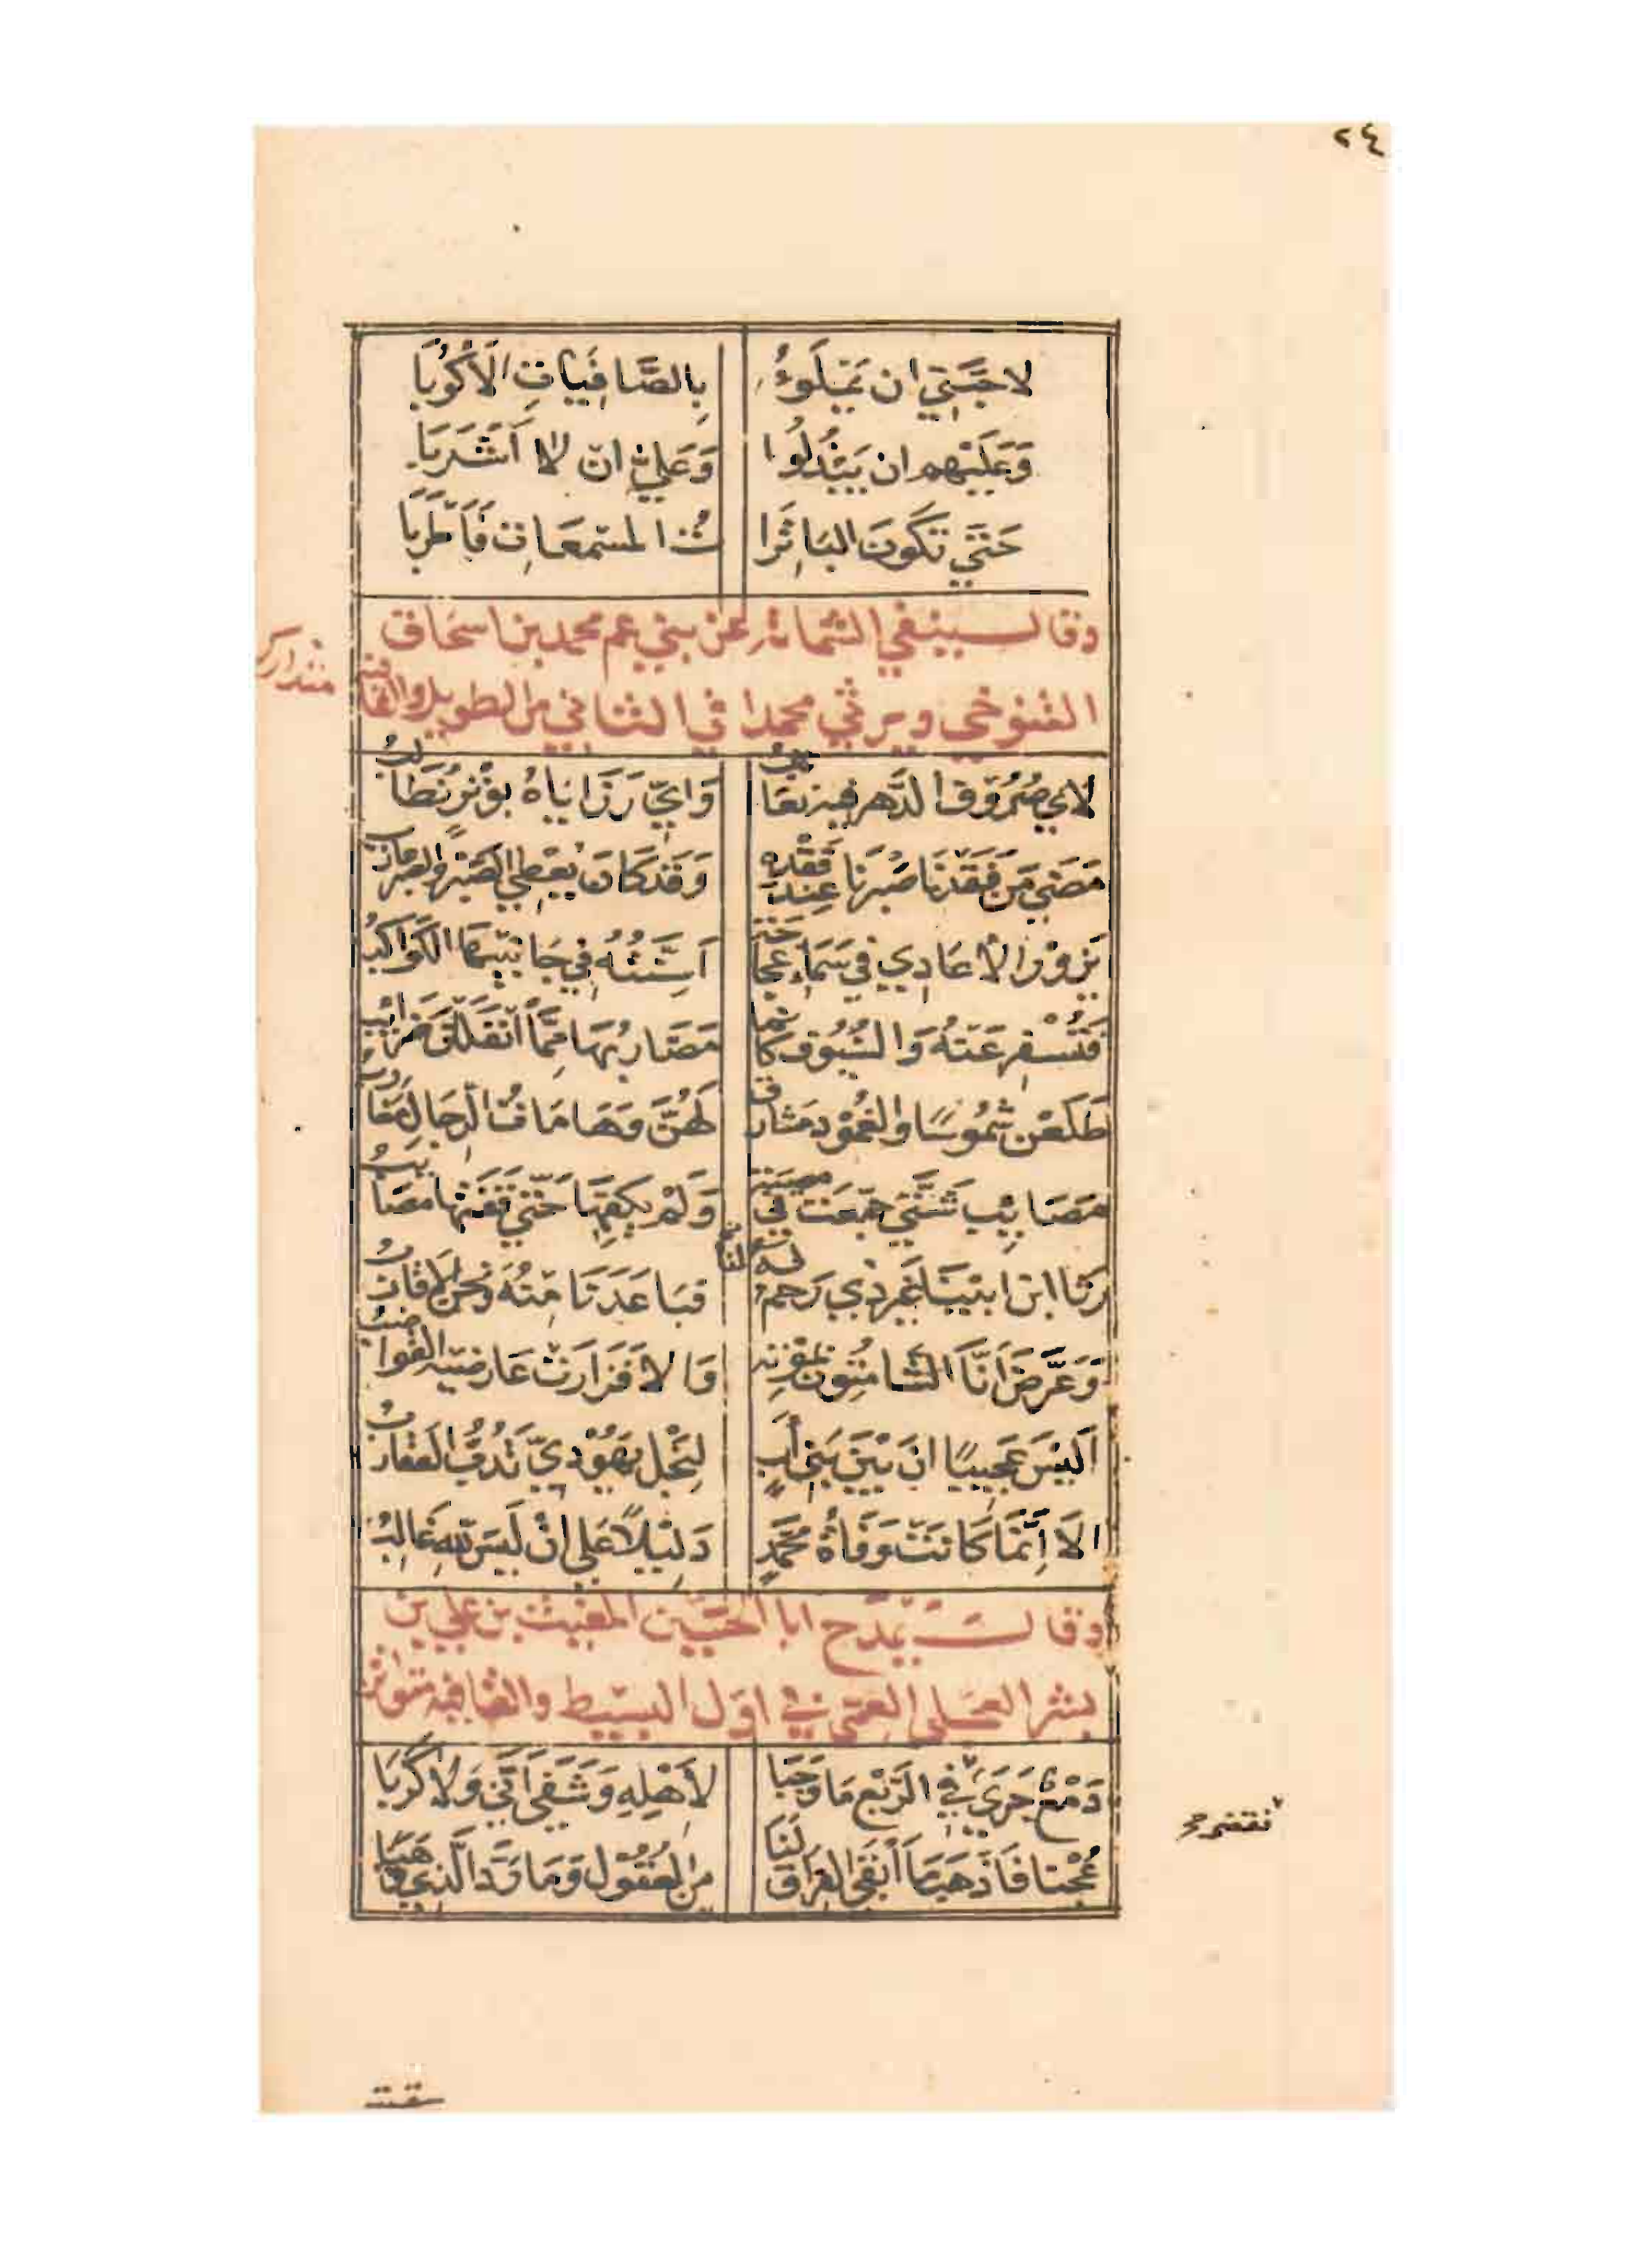 ٢٤
لاحِبَّتِي ان يَمْلَؤُا بِالصَّافِيَاتِ الَاكْوُبَا
وَعَلَيْهِم ان يَبْذُلُوا وَعَلَيَّ ان لا اَشْرَبَا
حَتَّي تَكُونَ البَاتِرَا تُ المسْمِعَاتِ فَاَطْرَبَا
وقال ينفي الشماتة عن بني عم محمد بن اسحاق
التنوخي ويرثي محمدا في الثاني من الطويل والقافية متدارك
لاي صُرُوْفِ الدَّهرِ فيه نعاتِبُ وَايِّ رَزَايَاهُ بوِتْرٍ نُطَالِبُ
مَضَي مَن فَقَدْنَا صَبْرَنَا عِنْدَ فَقْدِهِ وَقَدْ كَانَ يُعْطِي الصَبْرَ والصبرُ عازبُ
يَزُوْرُ الاعَادِي في سَمَاءِ عَجَاجَةٍ اَسِنَّتُهُ فِي جَانِبَيْهَا الكَوَاكِبُ
فَتُسْفِرُ عَنْهُ وَالسُّيُوْفُ كَانَّمَا مَضَارِبُهَا مِمَّا انْفَلَلْنَ ضَرَائِبُ
طَلَعْنَ شُمُوْسًا والغُمُوْدُ مَشَارِقٌ لَهُنَّ وَهَامَاتُ الرِّجَالِ مَغَارِبُ
مَصَايِبُ شَتَّي جُمِّعَتْ فِي مصيبَةٍ وَلَمْ يَكْفِهَا حَتَّي قَفَتْهَا مَصَايِبُ
رَثَا ابنَ ابِيْنَا غَيرُ ذِي رَحِمٍ لَهُ فبَاعَدَنَا مِنْهُ وَنَحْنُ الاقَارِبُ
وَعَرَّضَ اَنَّا الشَّامِتُونَ بِمَوْتِهِ وَالا فَزَارَتْ عَارِضَيْهِ القَوَاضِبُ
اَلَيْسَ عَجِيبًا انَّ بَيْنَ بَنِي اَبٍ لِنَجْلِ يَهُوْدِيٍّ تَدُبُّ العَقَارِبُ
الَا اِنَّمَا كَانَتْ وَفَاةُ مُحَمَّدٍ دَلِيْلاً عَلي انْ لَيْسَ للهِ غَالِبُ
وقال يمدح ابا الحسين المغيث بن علي بن
بشر العجلي العمي في اول البسيط والقافيه متواتر
دَمْعٌ جَرَي في الرَّبْعِ مَا وَجَبَا لاَهْلِهِ وَشَفَي اَنَّي وَلا كَرَبَا
عُجْنَا فَاَذْهَبَ مَا اَبْقَي الفِرَاقُ لَنَا مِنَ العُقُوْلِ وَمَا رَدَّ الَّذِي ذَهَبَا
سقيته